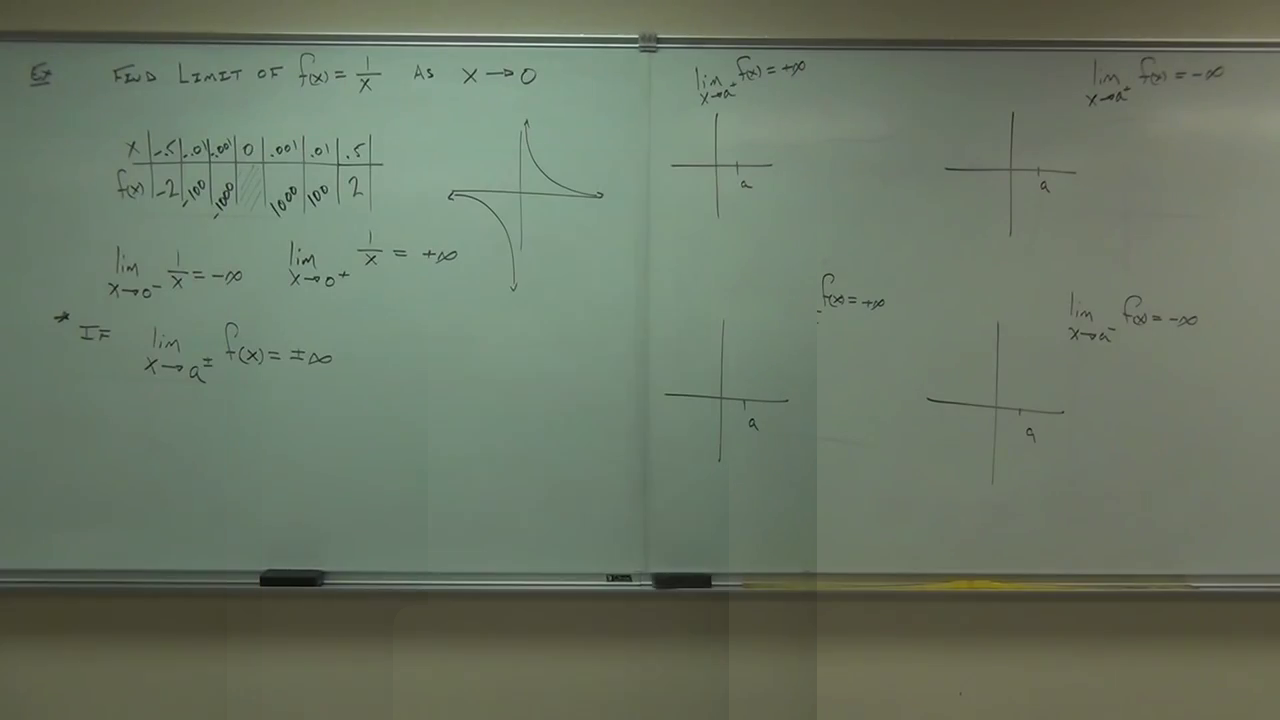 Ex FIND LIMIT OF f(x) = 1/x AS x → 0
x | -.5 | -.01 | -.001 | 0 | .001 | .01 | .5
f(x) | -2 | -100 | -1000 | | 1000 | 100 | 2
lim x→0⁻ 1/x = -∞ lim x→0⁺ 1/x = +∞
* IF lim x→a± f(x) = ±∞
lim x→a⁺ f(x) = +∞
a
lim x→a⁺ f(x) = -∞
a
f(x) = +∞
a
lim x→a⁻ f(x) = -∞
a